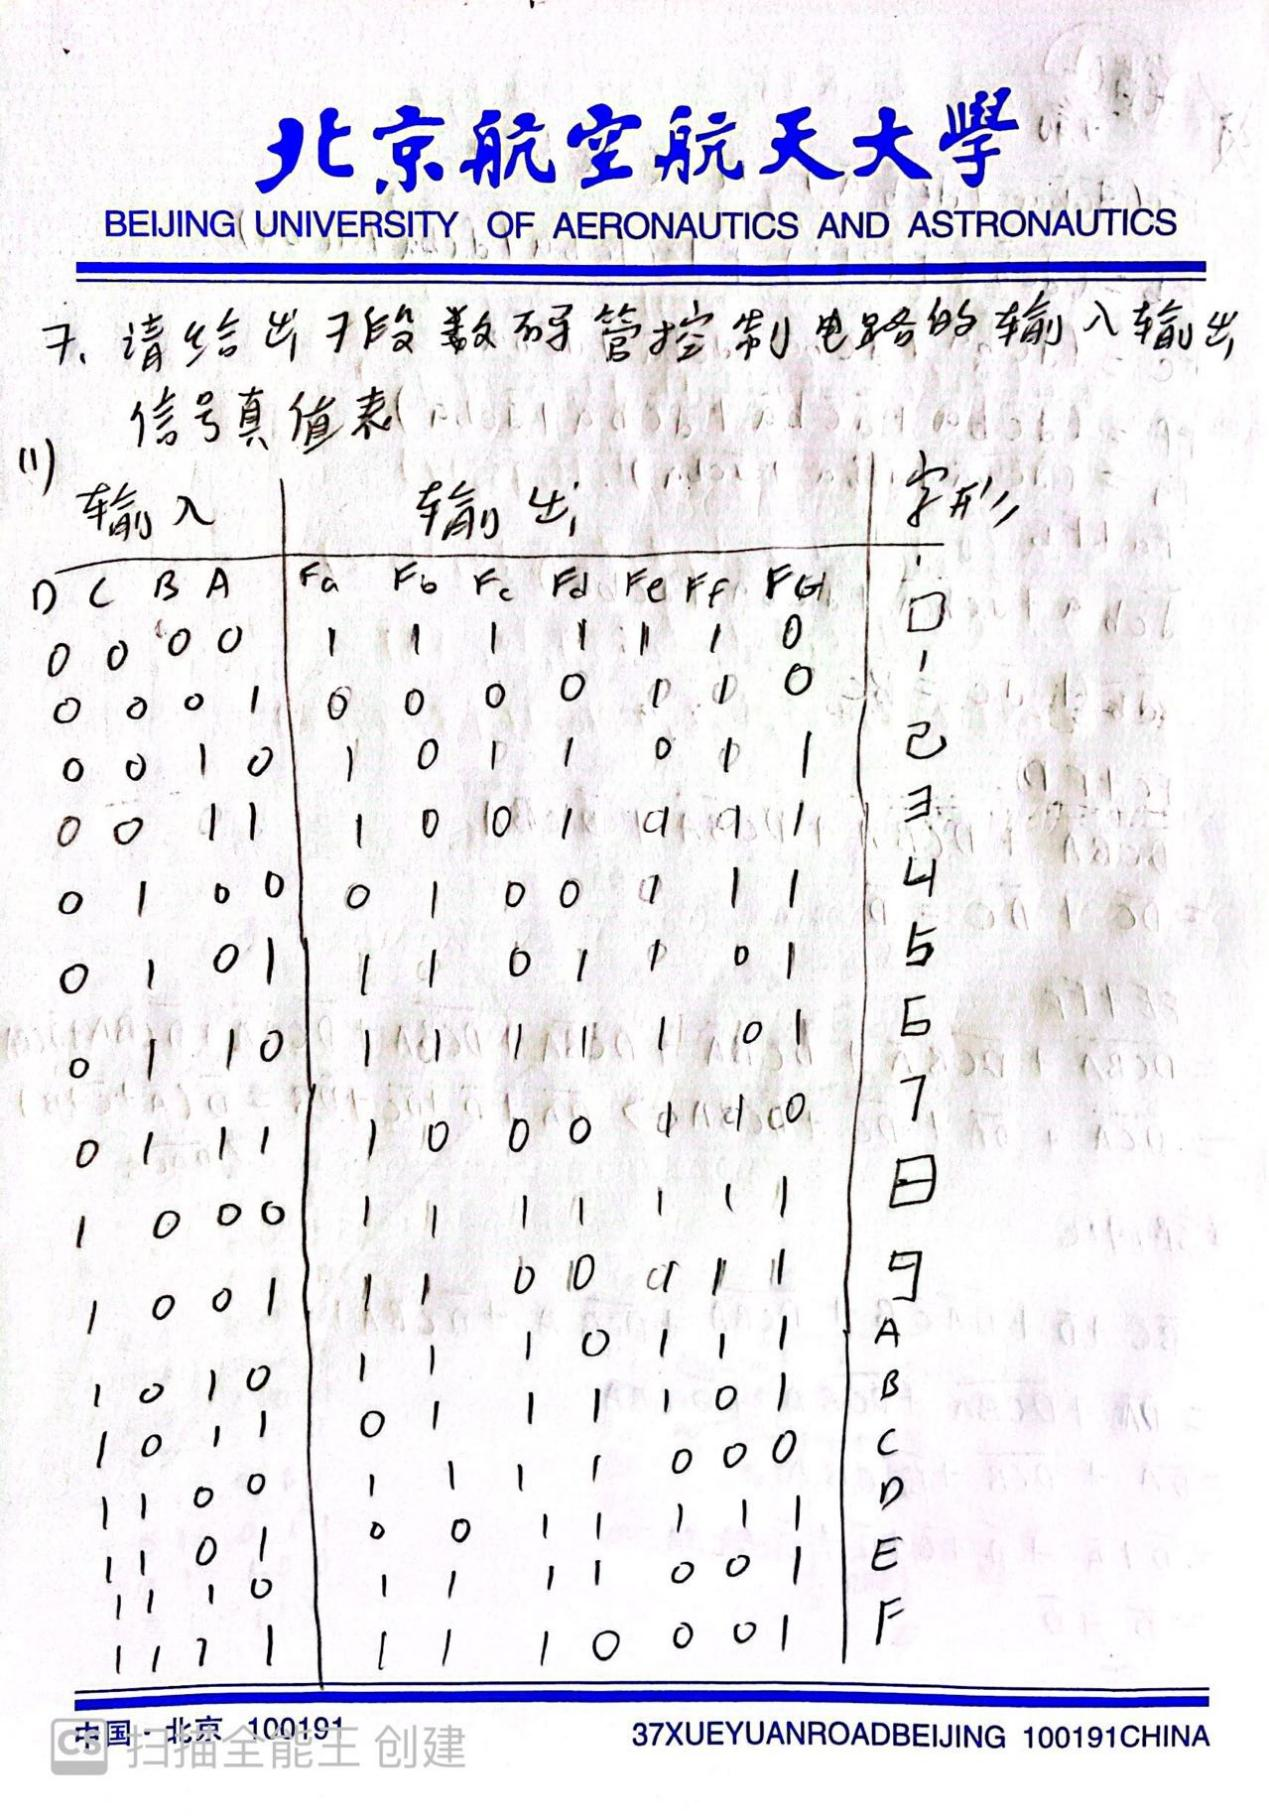 北京航空航天大學
BEIJING UNIVERSITY OF AERONAUTICS AND ASTRONAUTICS
7、请给出7段数码管控制电路的输入输出
信号真值表
(1)
输入 输出 字形
D C B A Fa Fb Fc Fd Fe Ff FG
0 0 0 0 1 1 1 1 1 1 0 0
0 0 0 1 0 0 0 0 1 1 0 1
0 0 1 0 1 0 1 1 0 1 1 2
0 0 1 1 1 0 0 1 1 1 3
0 1 0 0 0 1 0 0 1 1 1 4
0 1 0 1 1 1 0 1 1 0 1 5
0 1 1 0 1 1 1 1 1 0 1 6
0 1 1 1 1 0 0 0 1 1 0 7
1 0 0 0 1 1 1 1 1 1 1 8
1 0 0 1 1 1 0 0 1 1 9
1 0 1 0 1 1 1 0 1 1 1 A
1 0 1 1 0 1 1 1 1 0 1 B
1 1 0 0 1 1 1 1 0 0 0 C
1 1 0 1 0 0 1 1 1 1 1 D
1 1 1 0 1 1 1 1 0 0 1 E
1 1 1 1 1 1 1 0 0 0 1 F
中国·北京 100191 37XUEYUANROADBEIJING 100191CHINA
CS 扫描全能王 创建